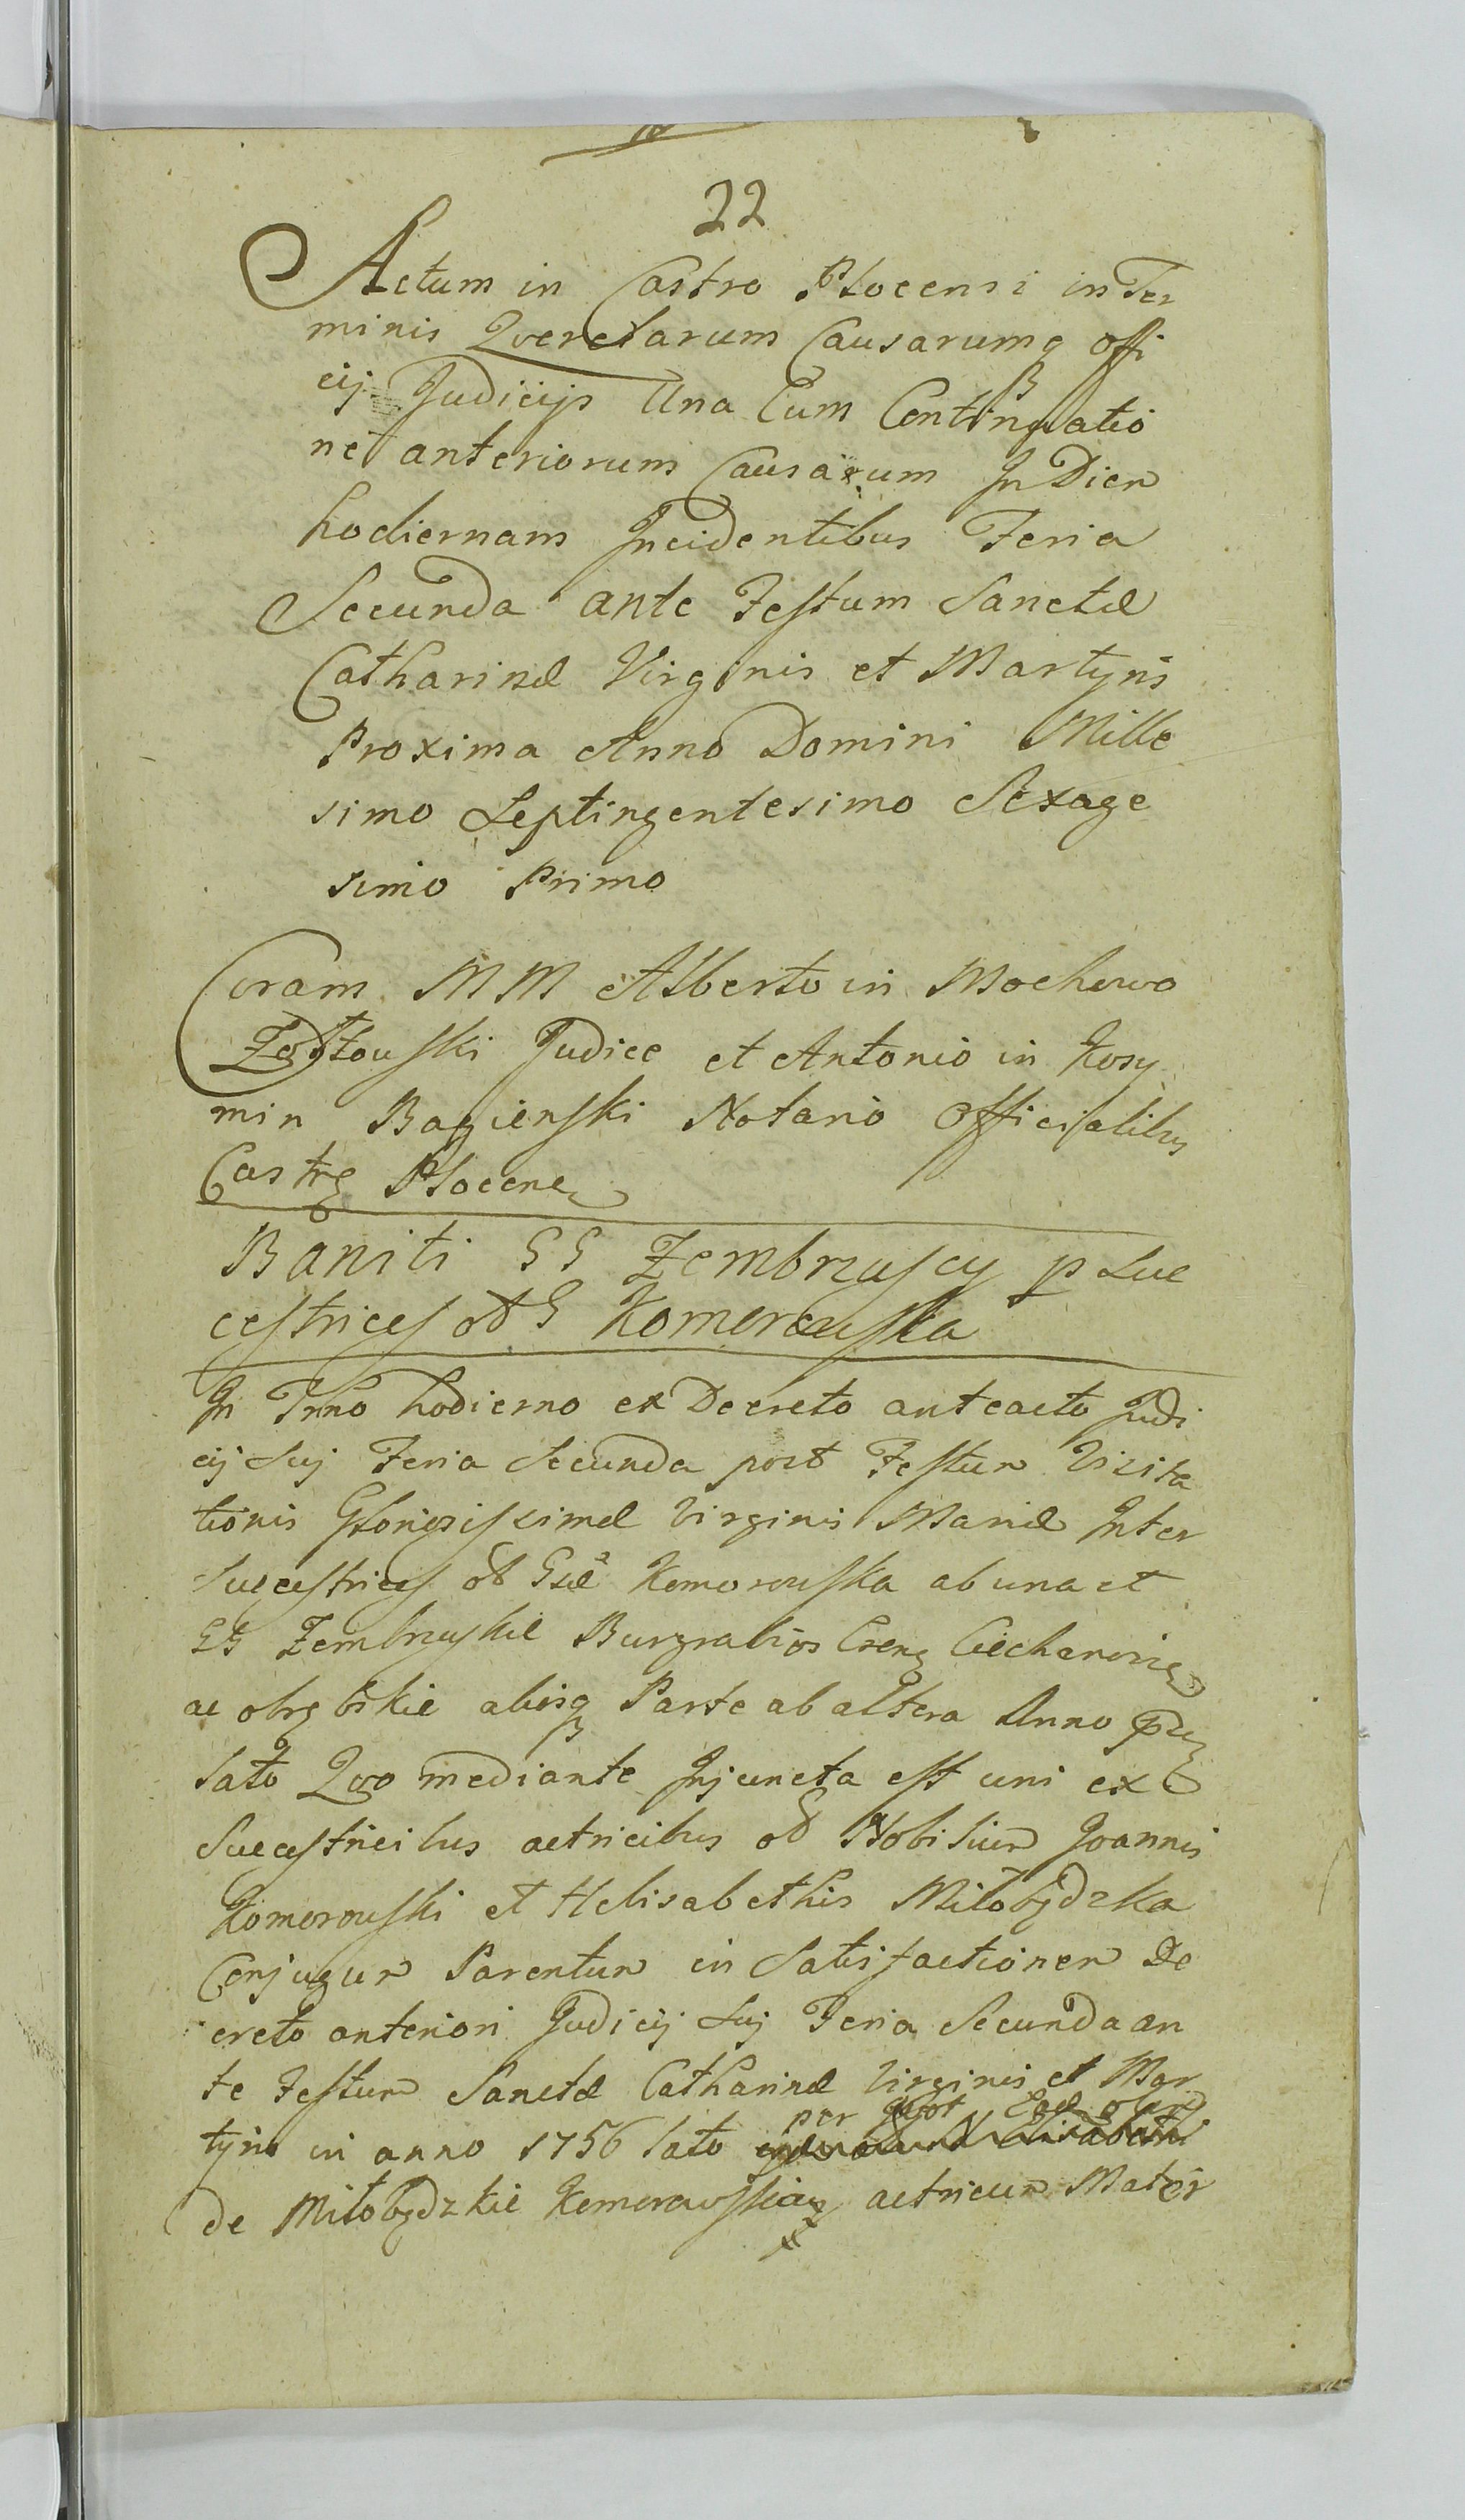 22
Actum in Castro Plocensi in Ter
minis Qverelarum Causarumq Offi
cij Judicijs Una Cum Continuatio
ne anteriorum Causarum In Diem
hodiernam Incidentibus Feria
Secunda ante Festum Sanctæ
Catharinæ Virginis et Martyris
Proxima Anno Domini Mille
simo Septingentesimo Sexage
simo Primo
Coram MM Alberto in Mochowo
Zółtowski Judice et Antonio in Kosy
min Bagieński Notario Officialibus
Castrg Plocen
Baniti GG Zembrzuscy p Suc
cestrices ob G Komorowska
In Trno hodierno ex Decreto anteacto Judi
cij Suj Feria Secunda post Festum Visita
tionis Gloriosissimæ Virginis Mariæ Inter
Succestrices ob Gsæ Komorowska ab una et
GG Zembrzuskie Burgrabios Crens Ciechanovien
ac obrębskie aliosq Parte ab altera Anno præ
lato Qvo mediante Injuncta est uni ex
Succestricibus actricibus ob Nobilium Joannis
Komorowski et Helisabethis Miłobędzka
Conjugum Parentum in Satisfactionem De
creto anteriori Judicij Suj Feria Secunda an
te Festum Sanctæ Catharinæ Virginis et Mar
tyris in anno 1756 lato per
de Miłobędzkie Komorowskie actricum Mater